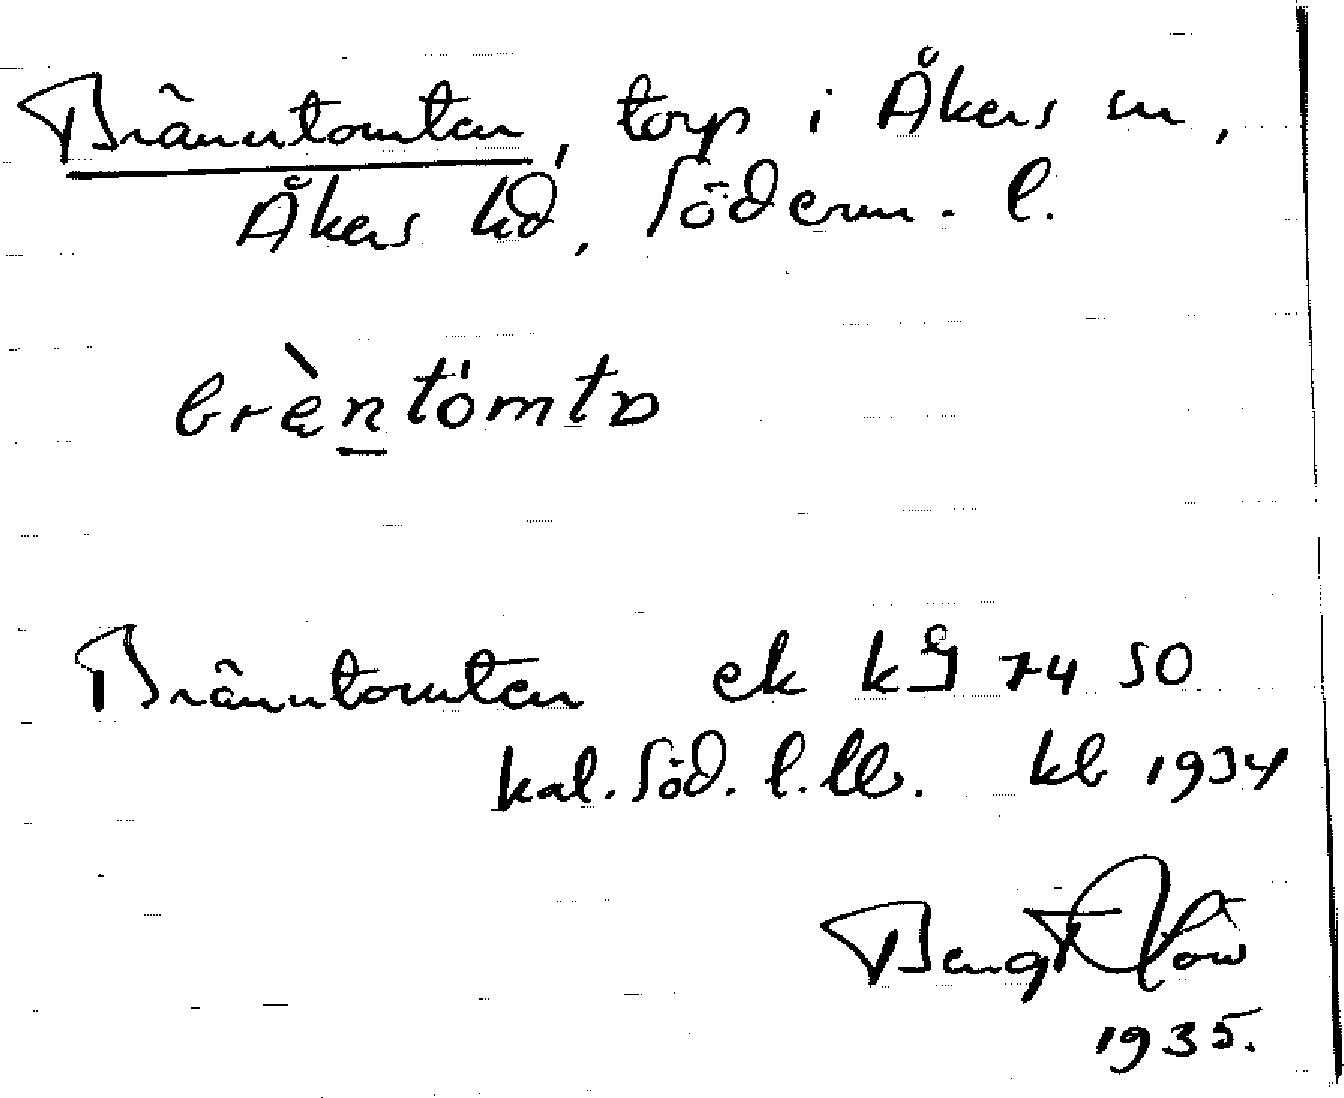 Bränntomten, torp i Åkers sn,
Åkers hd, Söderm. l.
brèntómta
Bränntomten ek 74 SO
kal. Söd. l. kb 1934
Bengt
1935.